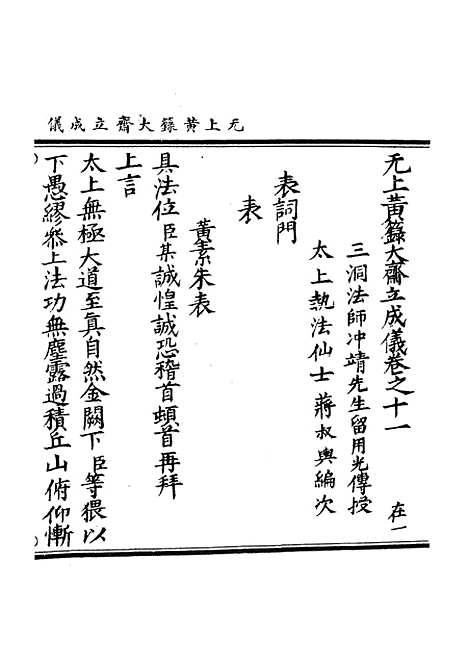 无上黄籙大齋立成儀
无上黄籙大齋立成儀卷之十一 在一
三洞法師冲靖先生留用光傳授
太上執法仙士蔣叔輿編次
表詞門
表
黄素朱表
具法位臣某誠惶誠恐稽首頓首再拜
上言
太上無極大道至真自然金闕下臣等猥以
下愚繆叅上法功無塵露過積丘山俯仰慚